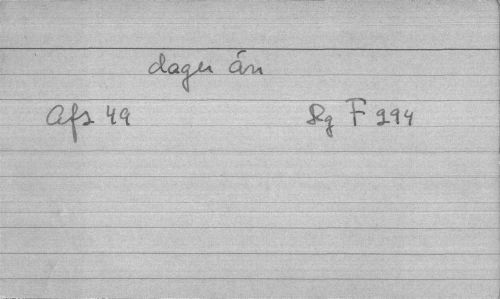 dager án
Afs 49 Rg F 294